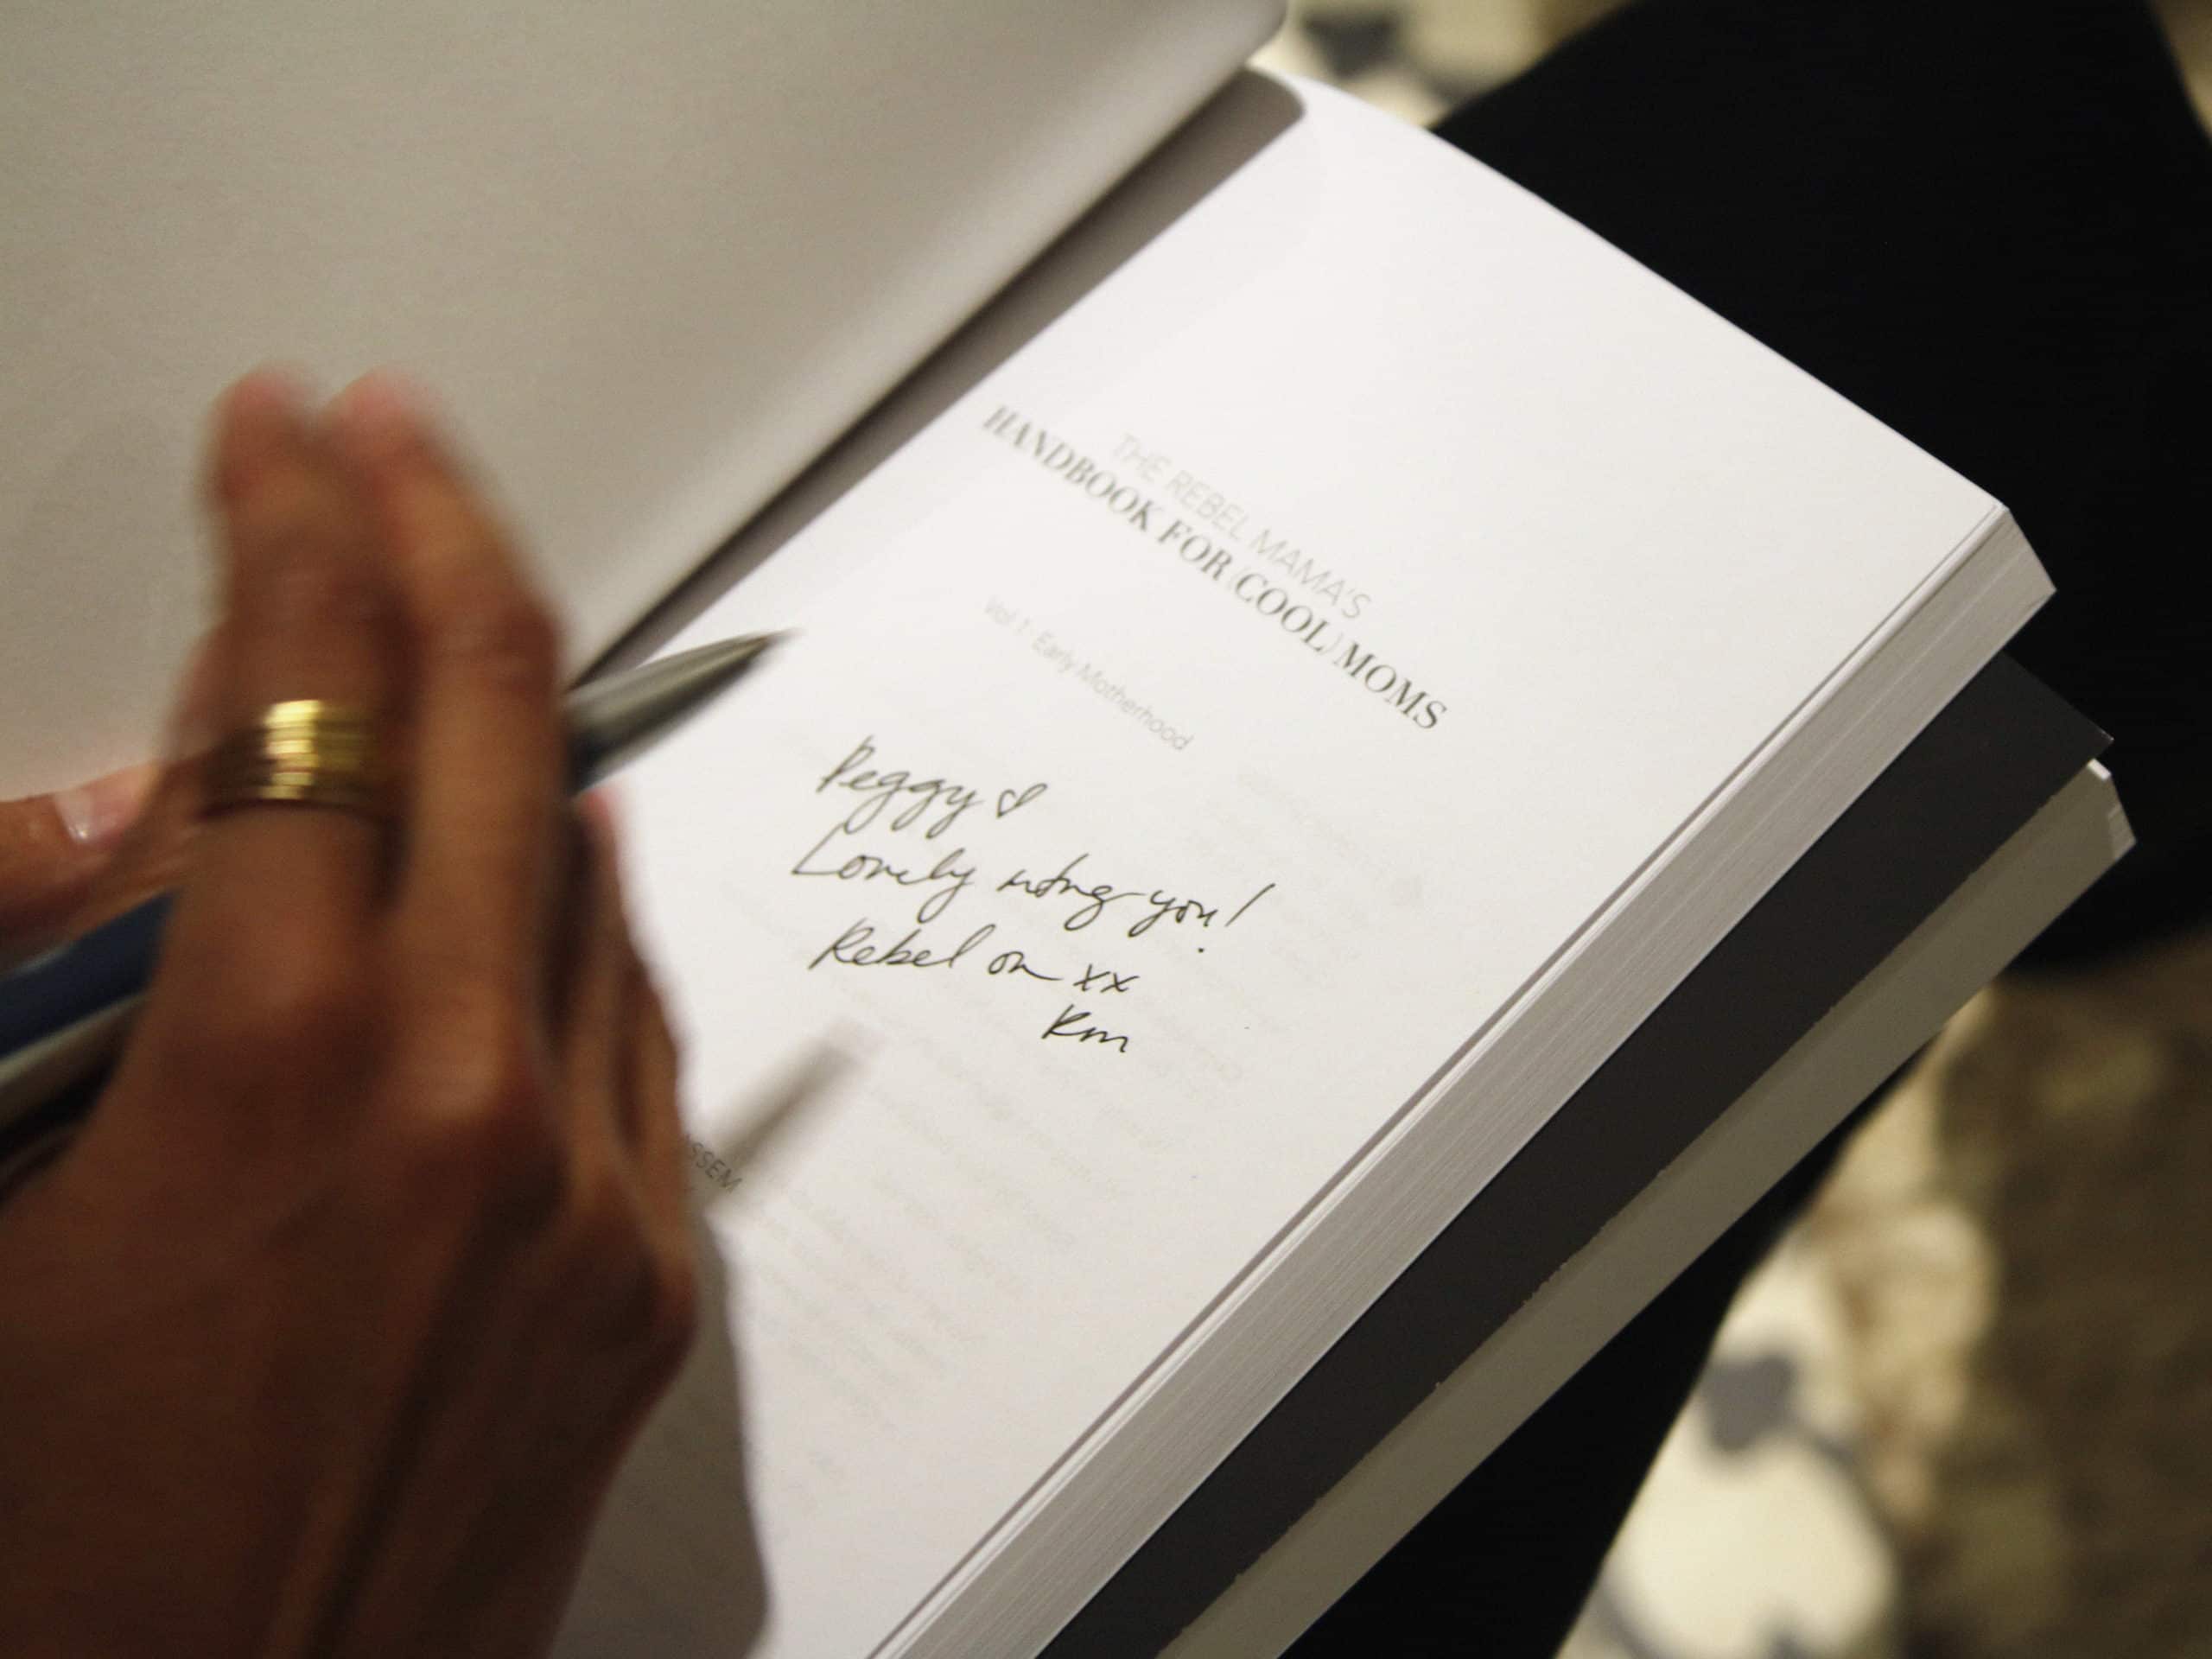 THE REBEL MAMA'S
HANDBOOK FOR (COOL) MOMS
Vol 1: Early Motherhood
Peggy
Lovely meeting you!
Rebel on xx
RM
SSEM